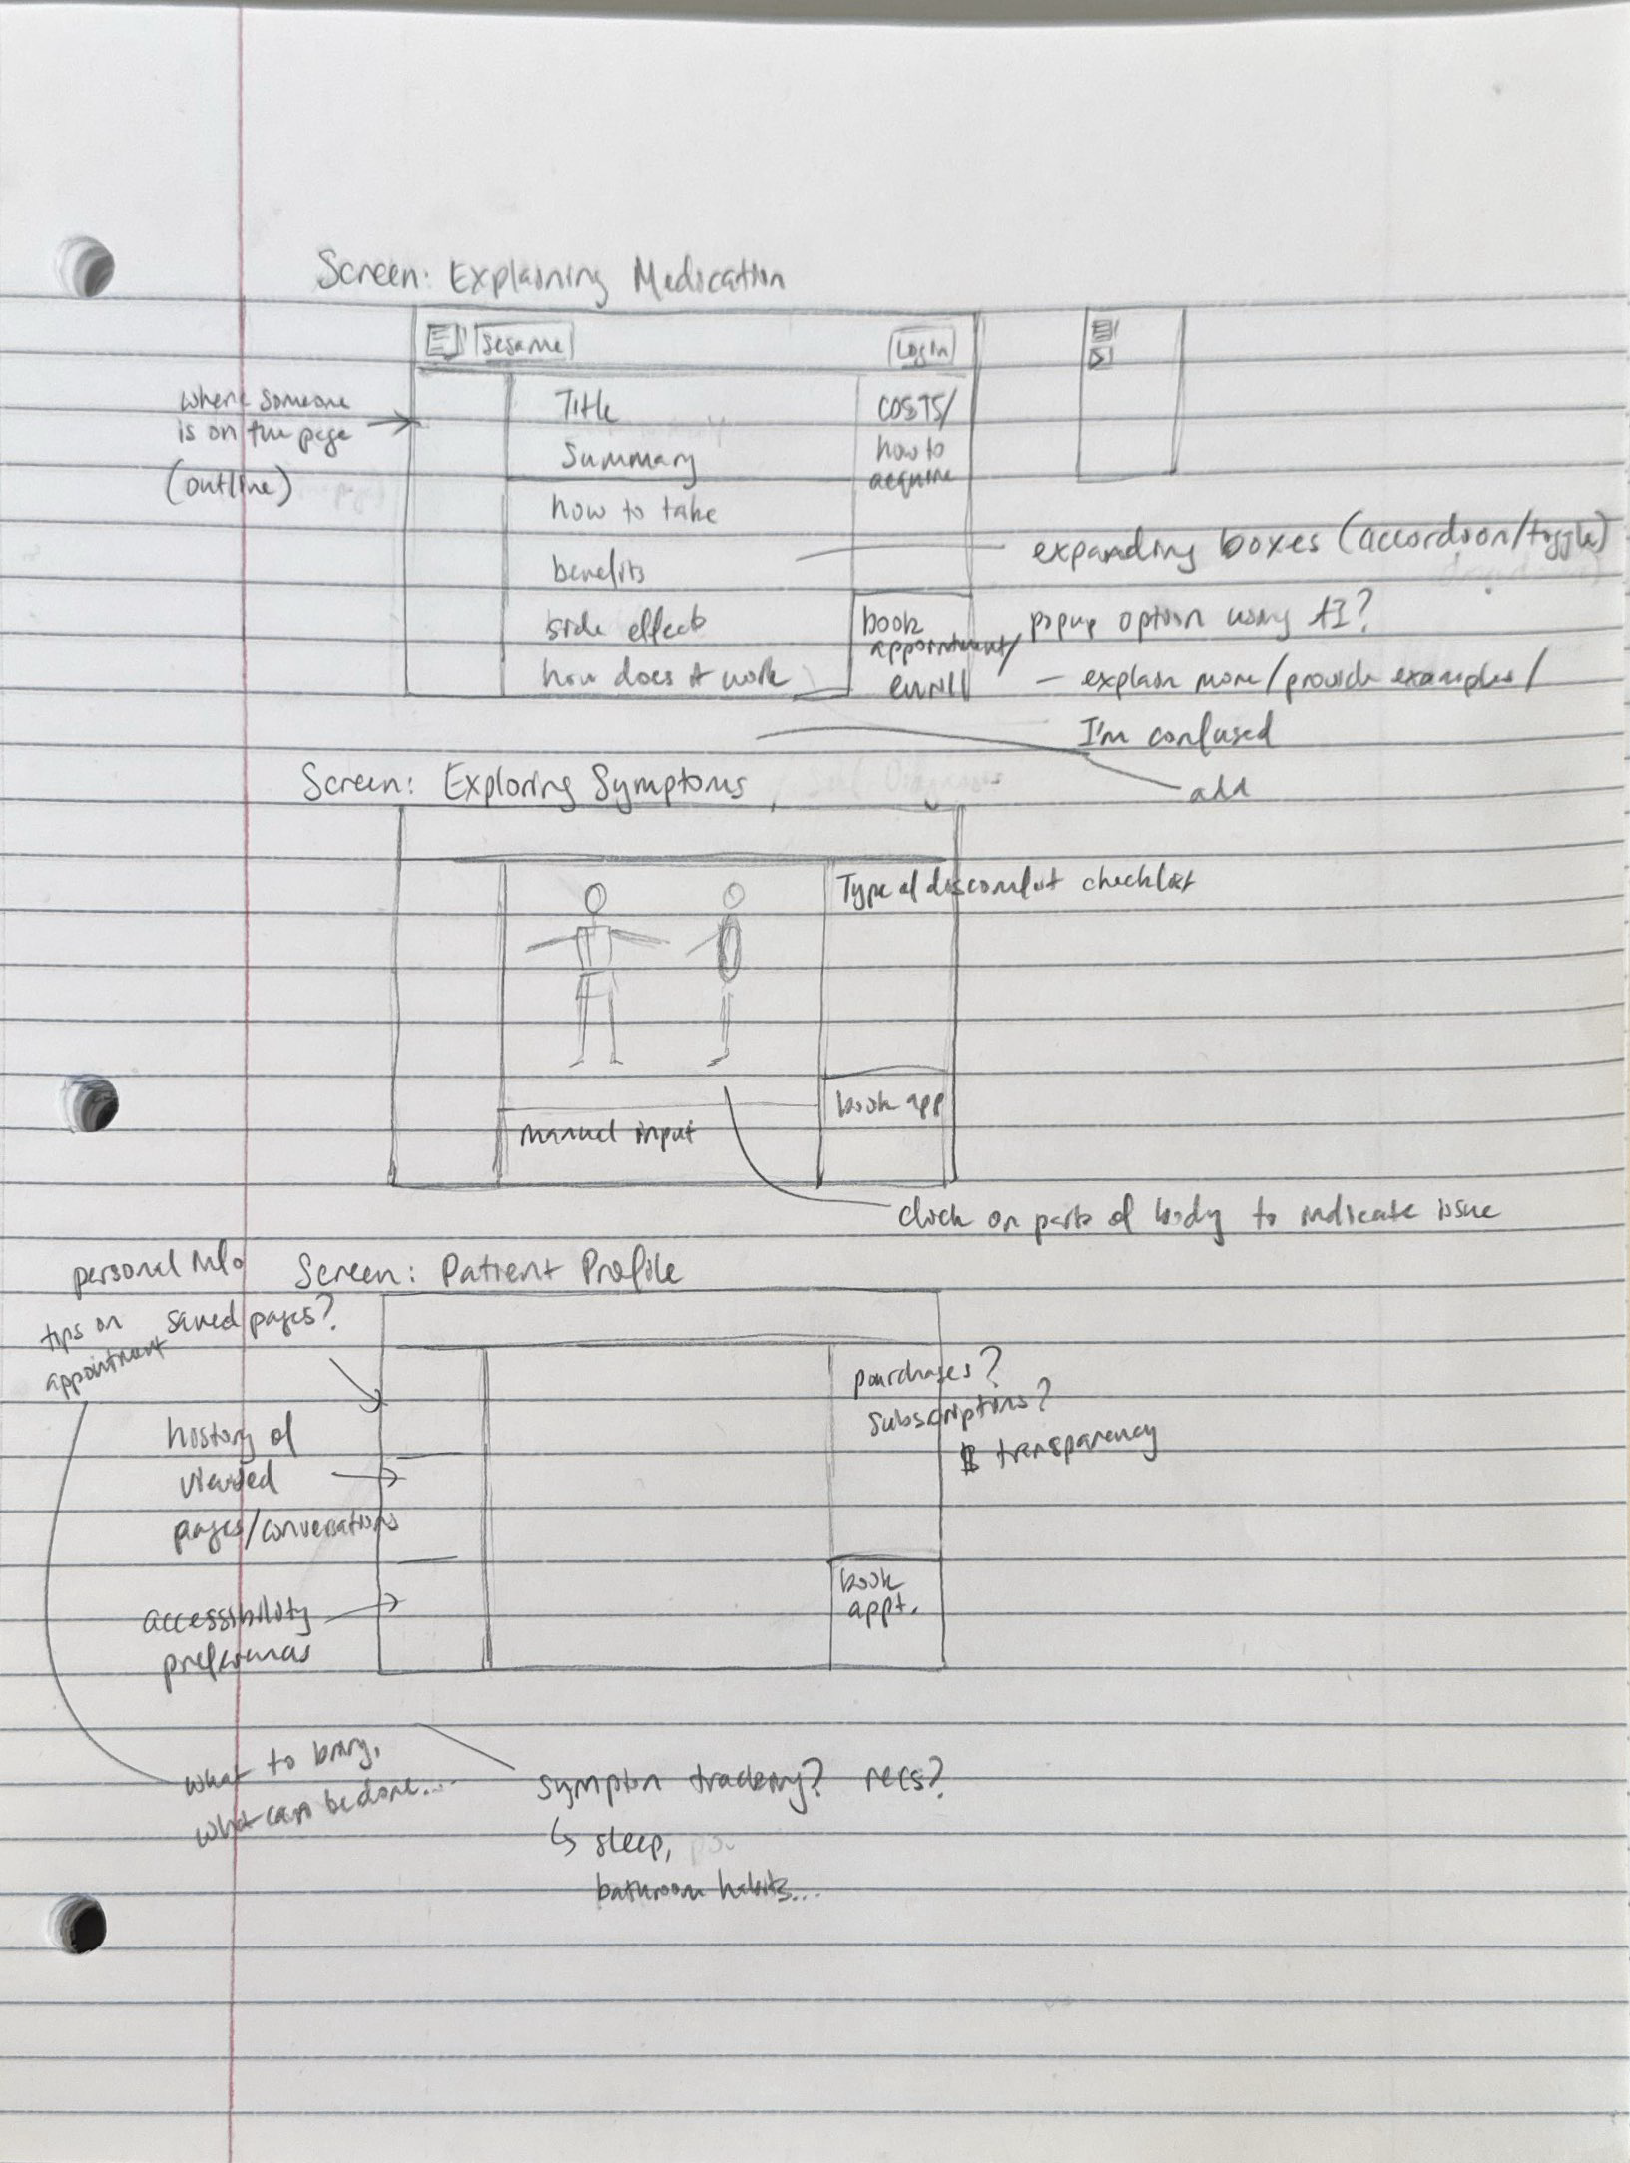 Screen: Explaining Medication
Sesame
Login
where someone
is on the page
(outline)
Title
Summary
how to take
benefits
side effects
how does it work
COSTS/
how to
acquire
book
appointment/
enroll
expanding boxes (accordion/toggle)
popup option using AI?
- explain more/provide examples/
I'm confused
add
Screen: Exploring Symptoms
Type of discomfort checklist
manual input
book app
click on parts of body to indicate issue
Screen: Patient Profile
personal info
tips on
appointment
saved pages?
history of
viewed
pages/conversations
accessibility
preferences
purchases?
subscriptions?
$ transparency
book
appt.
what to bring,
what can be done...
symptom tracking? recs?
↳ sleep,
bathroom habits...